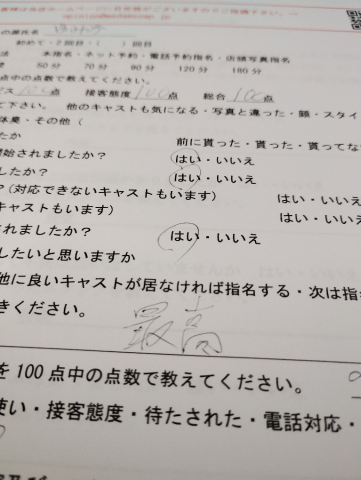 の源氏名
初めて・2回目・( )回目
法 本指名・ネット予約・電話予約指名・店頭写真指名
50分 70分 90分 120分 180分
点中の点数で教えてください。
100点 接客態度 100点 総合 100点
て下さい。 他のキャストも気になる・写真と違った・顔・スタイ
体臭・その他(
たか 前に貰った・貰った・貰ってな
開始されましたか? はい・いいえ
したか? はい・いいえ
?(対応できないキャストもいます) はい・いいえ
キャストもいます) はい・いいえ
されましたか? はい・いいえ
したいと思いますか
他に良いキャストが居なければ指名する・次は指
きください。
最高
を100点中の点数で教えてください。
使い・接客態度・待たされた・電話対応・